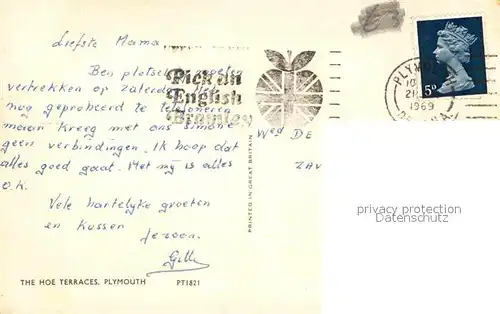 Liefste Mama
Ben plotseling moeten
vertrekken op zaterdag. Heb
nog geprobeerd te telefoneren
maar kreeg met ons simone
geen verbindingen. Ik hoop dat
alles goed gaat. Met mij is alles
O.K.
Vele hartelyke groeten
en kussen
je zoon.
Pick an
English
Bramley
PLYMO
10
21
1969
5D
Wed DE
ZAV
PRINTED IN GREAT BRITAIN
privacy protection
Datenschutz
THE HOE TERRACES, PLYMOUTH PT1821